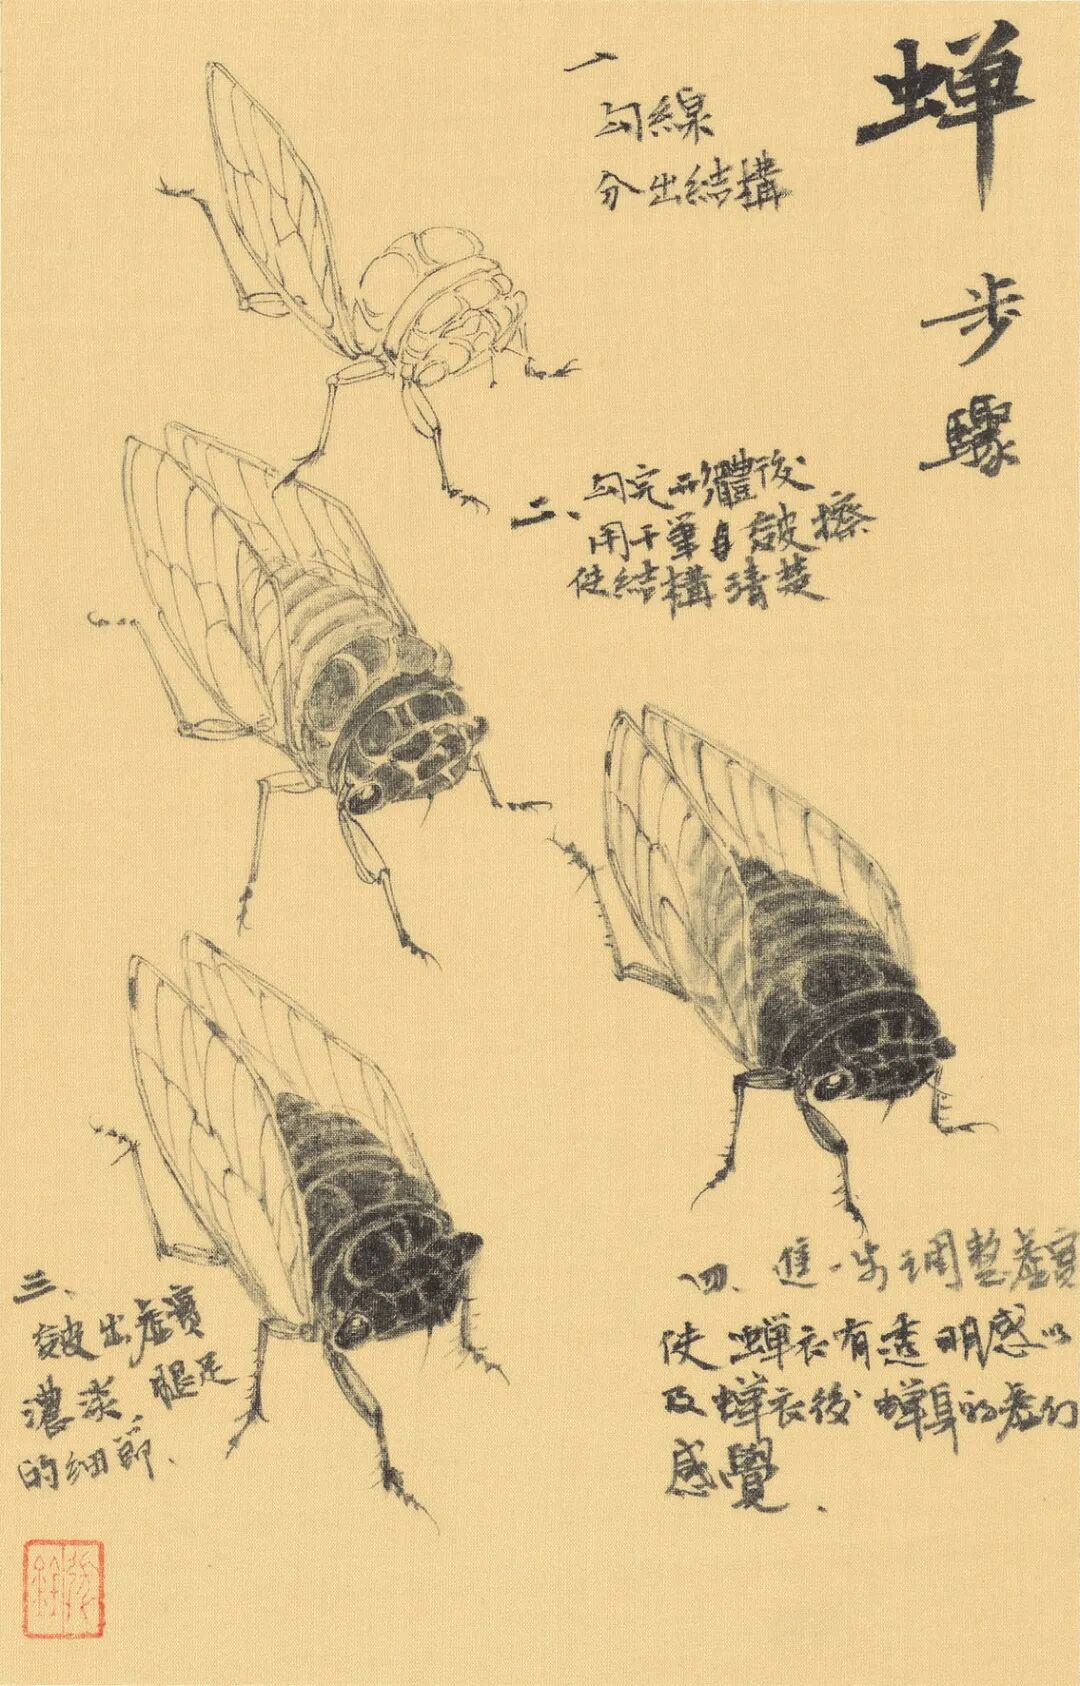 蝉
步
驟
一
勾線
分出結構
二、勾完形體後
用干筆自皴擦
使結構清楚
三、
皴出虛實
濃淡、腿足
的细節、
四、進一步调整虛實
使蝉衣有透明感以
及蝉衣後蝉身的虛
感覺、